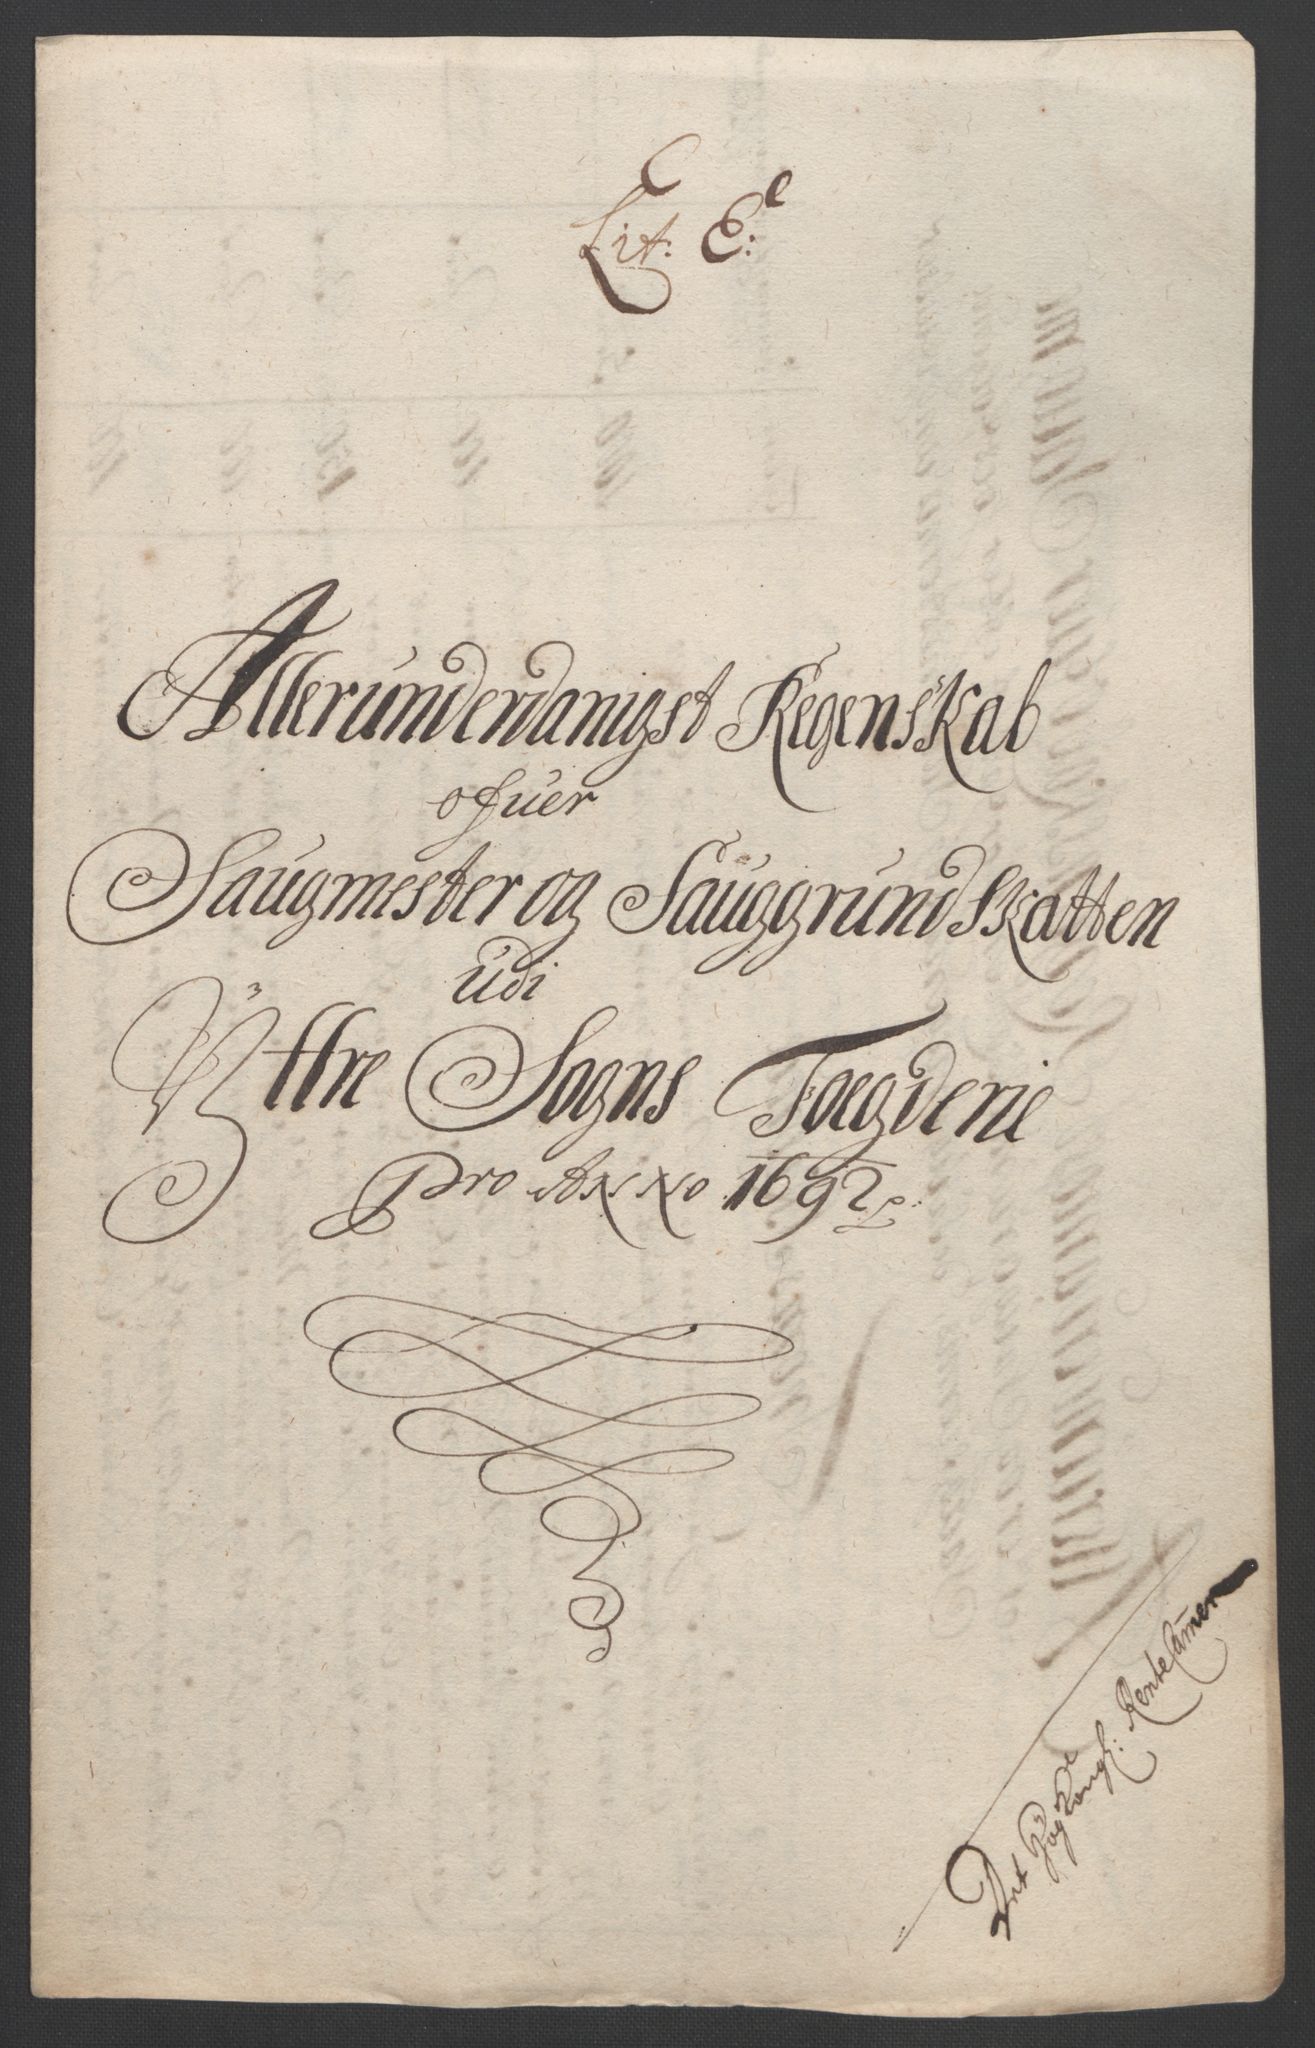 Lit: E:e
Allerunderdanigst Regenskab
ofuer
Saugmester og Sauggrund Skatten
udi
Yttre Sogns Foegderie
pro Anno 1692
Rente Camer